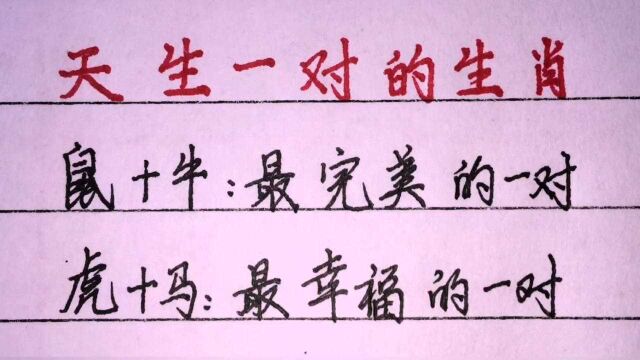 天生一对的生肖
鼠+牛:最完美的一对
虎+马:最幸福的一对